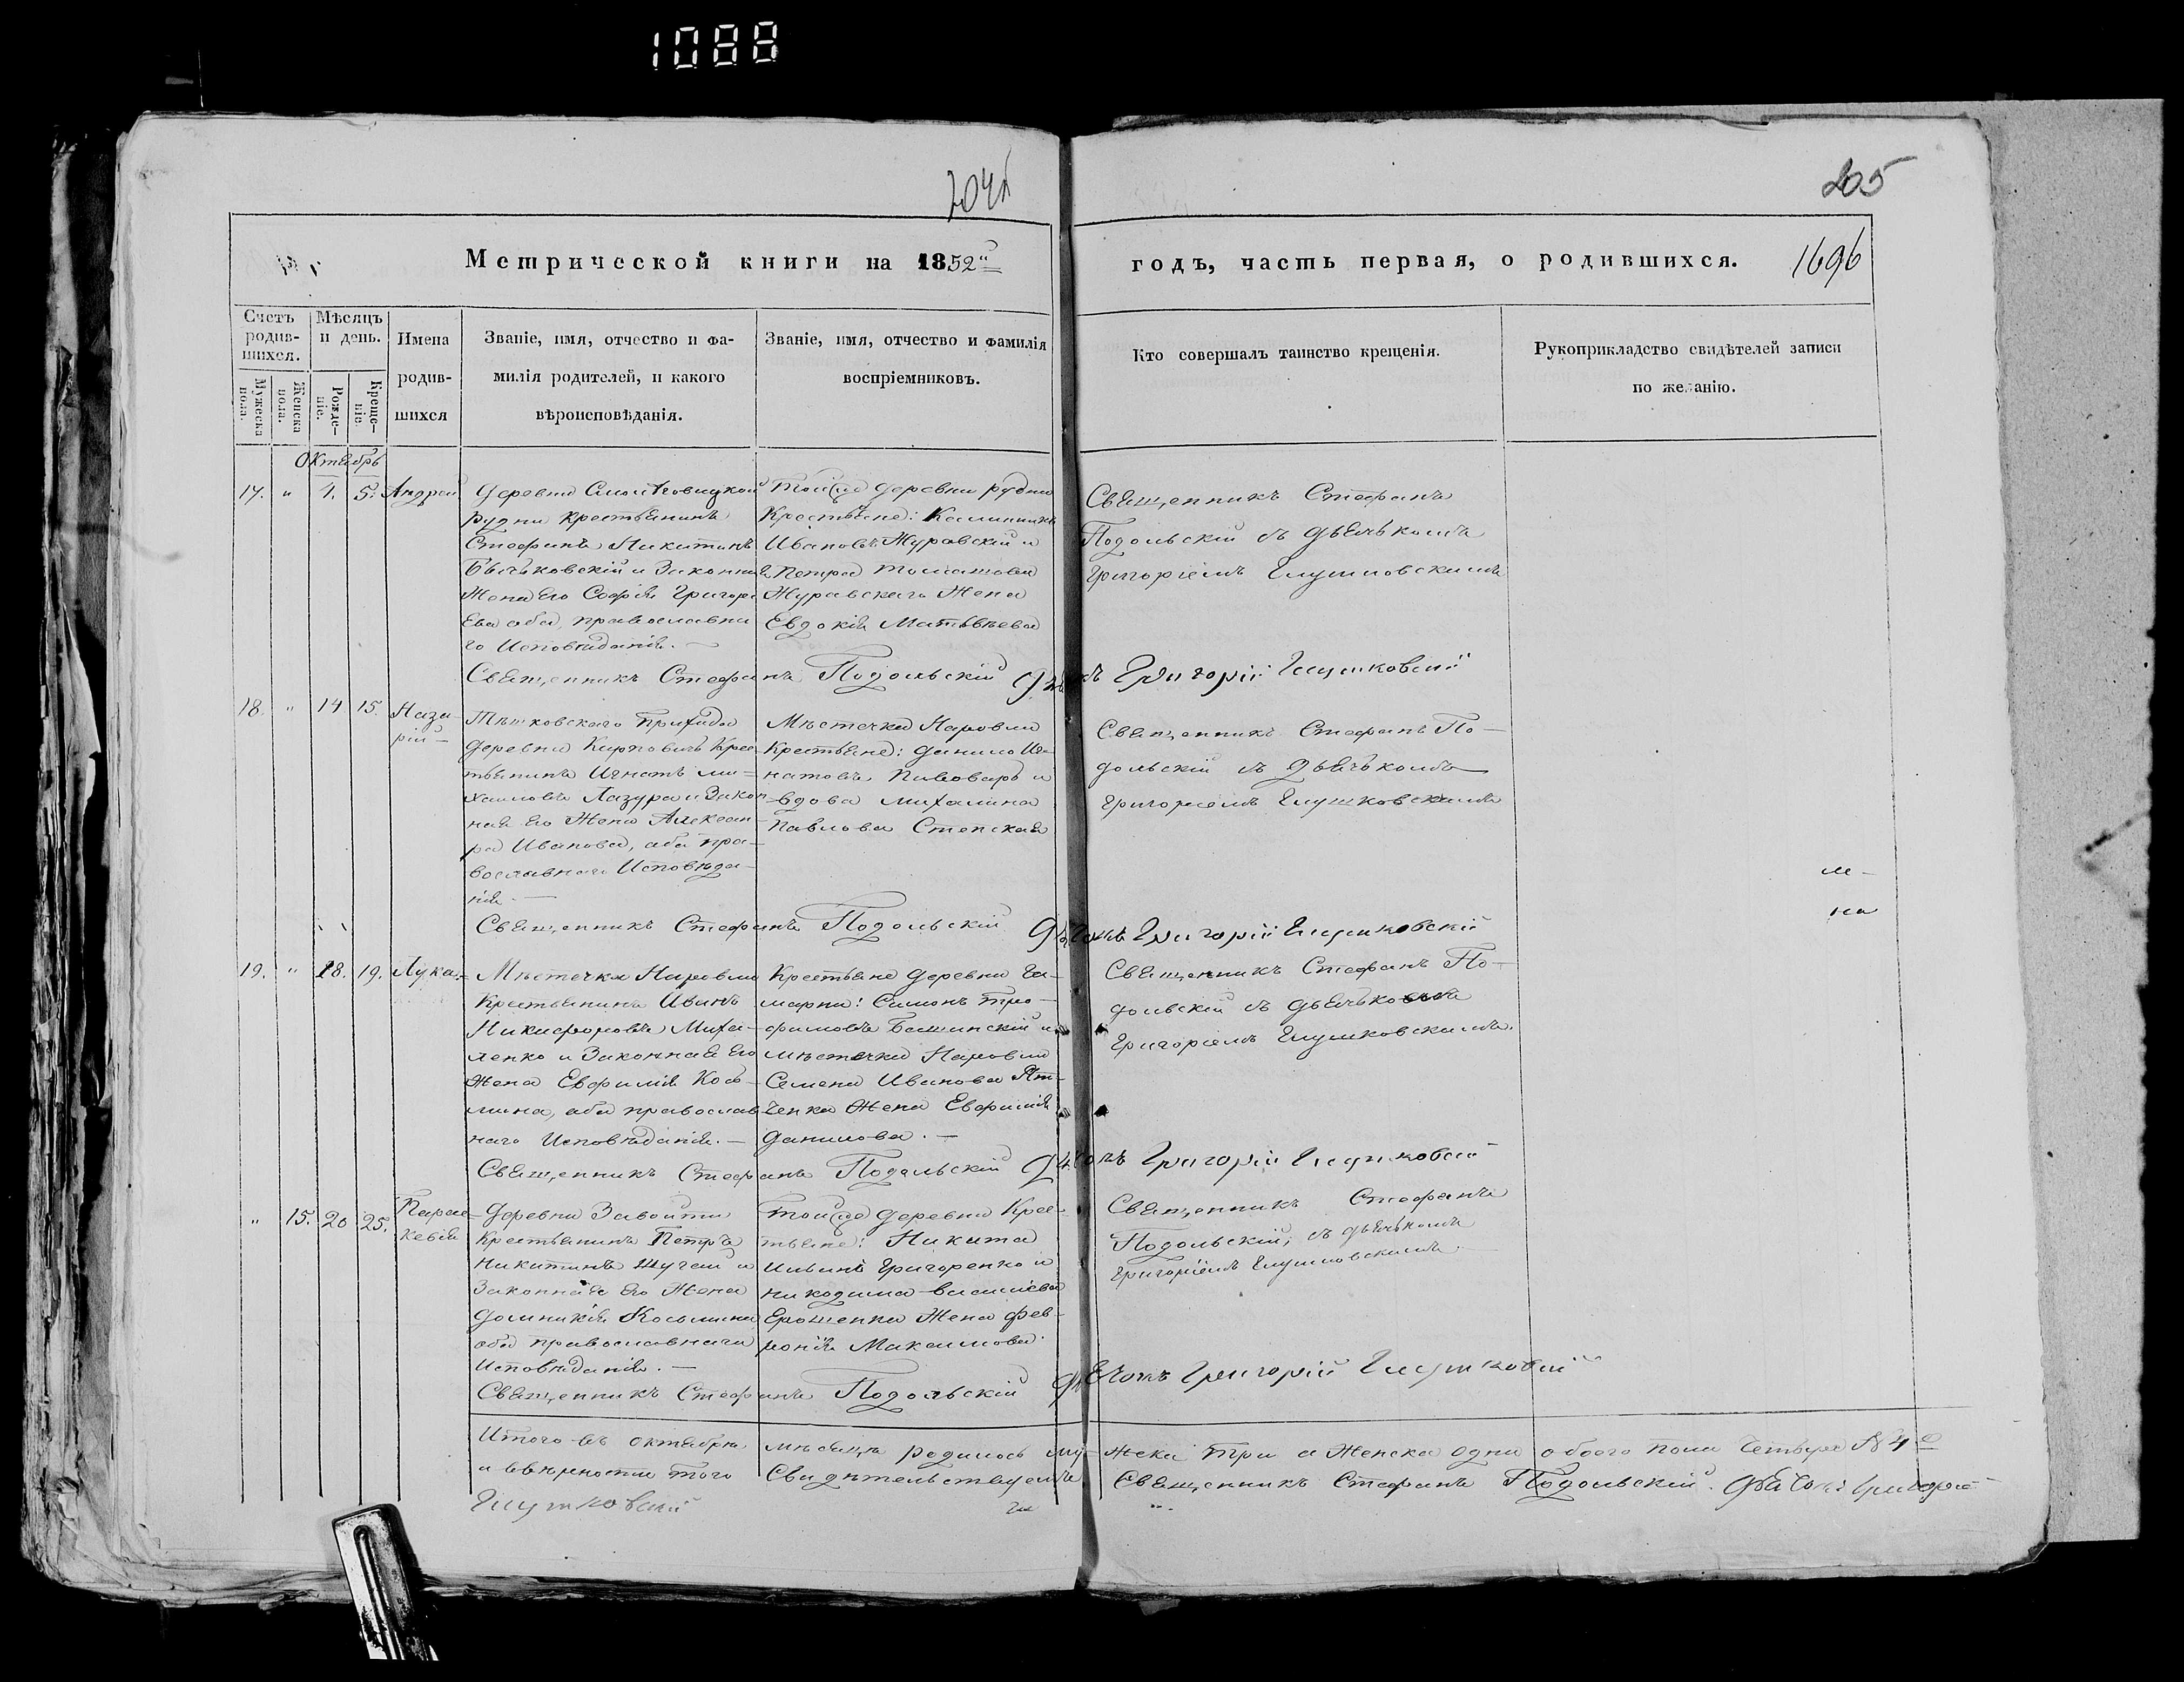 1088
204
205
Метрической книги на 1852й
годъ, часть первая, о родившихся.
1696
Счетъ родив-шихся.
Мужеска пола.
Женска пола.
Мѣсяцъ и день.
Рожде-ніе.
Креще-ніе.
Имена
родив-
шихся
Званіе, имя, отчество и фа-
милія родителей, и какого
вѣроисповѣданія.
Званіе, имя, отчество и фамилія
воспріемниковъ.
Кто совершалъ таинство крещенія.
Рукоприкладство свидѣтелей записи
по желанію.
Октябрь
17. " 5. Андрей
Деревни
Рудни крестьянинъ
Стефанъ Никитинъ
и законная
жена его Софія Григорь
ева оба, православна
го Исповѣданія. —
Той же деревни Рудни
Крестьяне: Калинникъ
Ивановъ Журавскій и
Петра Томашова
Журавскаго жена
Евдокія Матвѣева
Священникъ Стефанъ
Подольскій съ дьячькомъ
Григоріемъ Глушковскимъ
Священникъ Стефанъ Подольскій Дьячокъ Григорій Глушковскій
18. " 14 15. Наза-
рій —
прихода
деревни Карповичь Крес-
тьянинъ Игнатъ ми-
хаиловъ Лазура и Закон-
ная его Жена Алексан-
ра Иванова, оба пра-
вославнаго Исповѣда-
нія —
Мѣстечка Наровли
Крестьяне: Данило Иг-
натовъ Пивоваръ и
вдова Михалина
Павлова Степская
Священникъ Стефанъ По-
дольскій съ Дьячькомъ
Григоріемъ Глушковскимъ
Священникъ Стефанъ Подольскій Дьячокъ Григорій Глушковскій
19. " 18. 19. Лука
Мѣстечка Наровли
Крестьянинъ Иванъ
Никифоровъ Миха-
ленко и Законная его
Жена Евфимія Кось-
мина, оба православ
наго Исповѣданія. —
Крестьяне деревни Га-
марни: Симонъ Тро-
фимовъ Башинскій и
мѣстечка Наровли
Семена Иванова Ят-
ченка Жена Евфимія
Данилова. —
Священникъ Стефанъ По-
дольскій съ дьячькомъ
Григоріемъ Глушковскимъ.
Священникъ Стефанъ Подольскій Дьячокъ Григорій Глушковскій
" 15. 20 25. Парас-
кевія
Деревни Завойти
Крестьянинъ Петръ
Никитинъ и
Законная его Жена
Домникія Косьмина
оба православнаго
Исповѣданія. —
Той же деревни Крес-
тьяне: Никита
Ильинъ Григоренко и
Никодима Василіева
Ерошенка Жена Фев-
ронія Максимова.
Священникъ Стефанъ
Подольскій, съ дьячькомъ
Григоріемъ Глушковскимъ.
Священникъ Стефанъ Подольскій Дьячокъ Григорій Глушковскій
Итого въ октябрѣ мѣсяцѣ родилось мужеска три а Женска одна обоего пола Четыре № 4е
и въ вѣрности того Свидѣтельствуемъ Священникъ Стефанъ Подольскій. Дьячокъ Григорій
Глушковскій